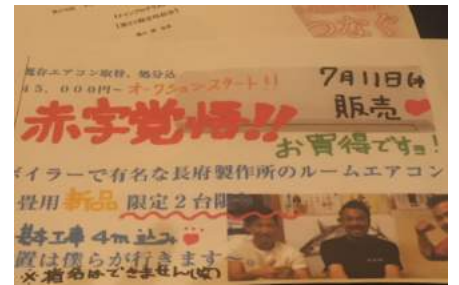 つなぐ
既存エアコン取替、処分込
45,000円~オークションスタート!!
7月11日㈭
販売
赤字覚悟!!
お買得ですョ!
ボイラーで有名な長府製作所のルームエアコン
畳用 新品 限定2台限
基本工事 4m込み
置は僕らが行きます~
※指名はできません(笑)